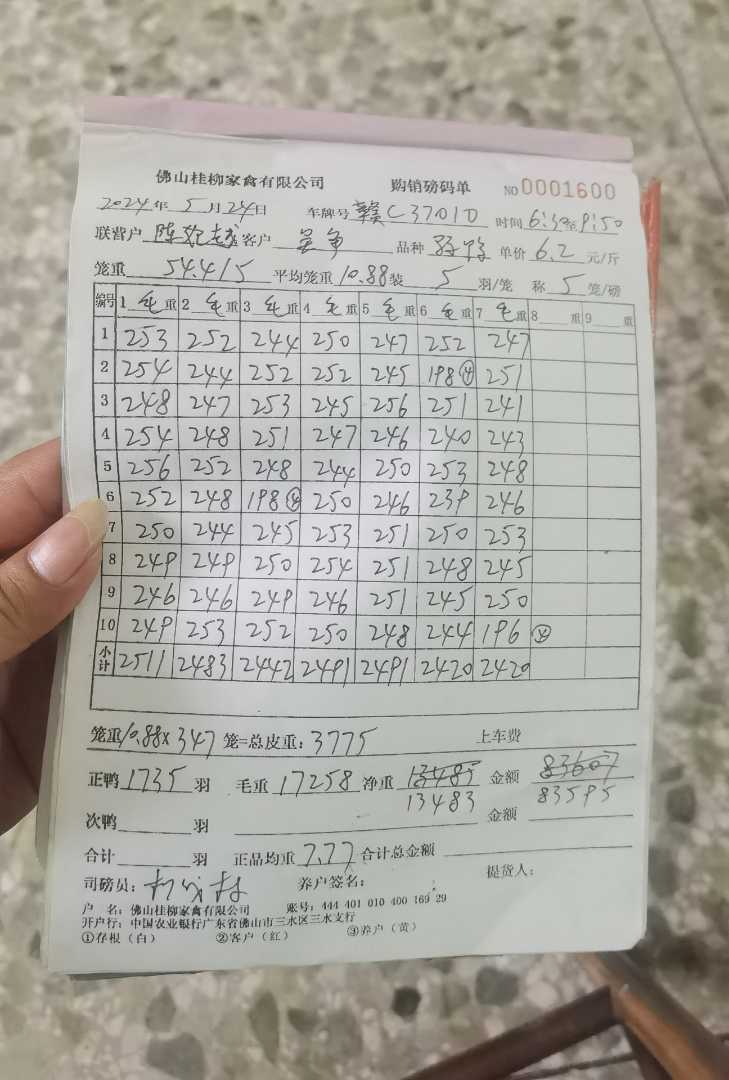 佛山桂柳家禽有限公司 购销磅码单 NO 0001600
2024年5月24日 车牌号 赣C37010 时间 6:30至9:50
联营户 陈 客户 品种 单价 6.2 元/斤
笼重 54.4/5 平均笼重 10.88 装 5 羽/笼 称 5 笼/磅
编号 1 毛重 2 毛重 3 毛重 4 毛重 5 毛重 6 毛重 7 毛重 8 重 9 重
1 253 252 244 250 247 252 247
2 254 244 252 252 245 198④ 251
3 248 247 253 245 256 251 241
4 254 248 251 247 246 240 243
5 256 252 248 244 250 253 248
6 252 248 198④ 250 246 239 246
7 250 244 245 253 251 250 253
8 249 249 250 254 251 248 245
9 246 246 249 246 251 245 250
10 249 253 252 250 248 244 196④
小计 2511 2483 2442 2491 2491 2420 2420
笼重10.88×347 笼=总皮重:3775 上车费
正鸭 1735 羽 毛重 17258 净重 13485 金额 83607
13483 83595
次鸭 羽 金额
合计 羽 正品均重 7.77 合计总金额
司磅员: 养户签名: 提货人:
户 名:佛山桂柳家禽有限公司 账号:444 401 010 400 169 29
开户行:中国农业银行广东省佛山市三水区三水支行
①存根(白) ②客户(红) ③养户(黄)